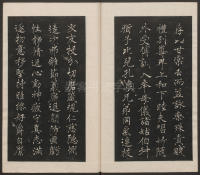 存以甘棠去而益詠樂殊貴賤
禮別尊卑上和下睦夫唱婦隨
外受傅訓入奉母儀諸姑伯叔
猶子比兒孔懷兄弟同氣連枝
交友投分切磨箴規仁慈隱惻
造次弗離節義廉退顛沛匪虧
性靜情逸心動神疲守真志滿
逐物意移堅持雅操好爵自縻